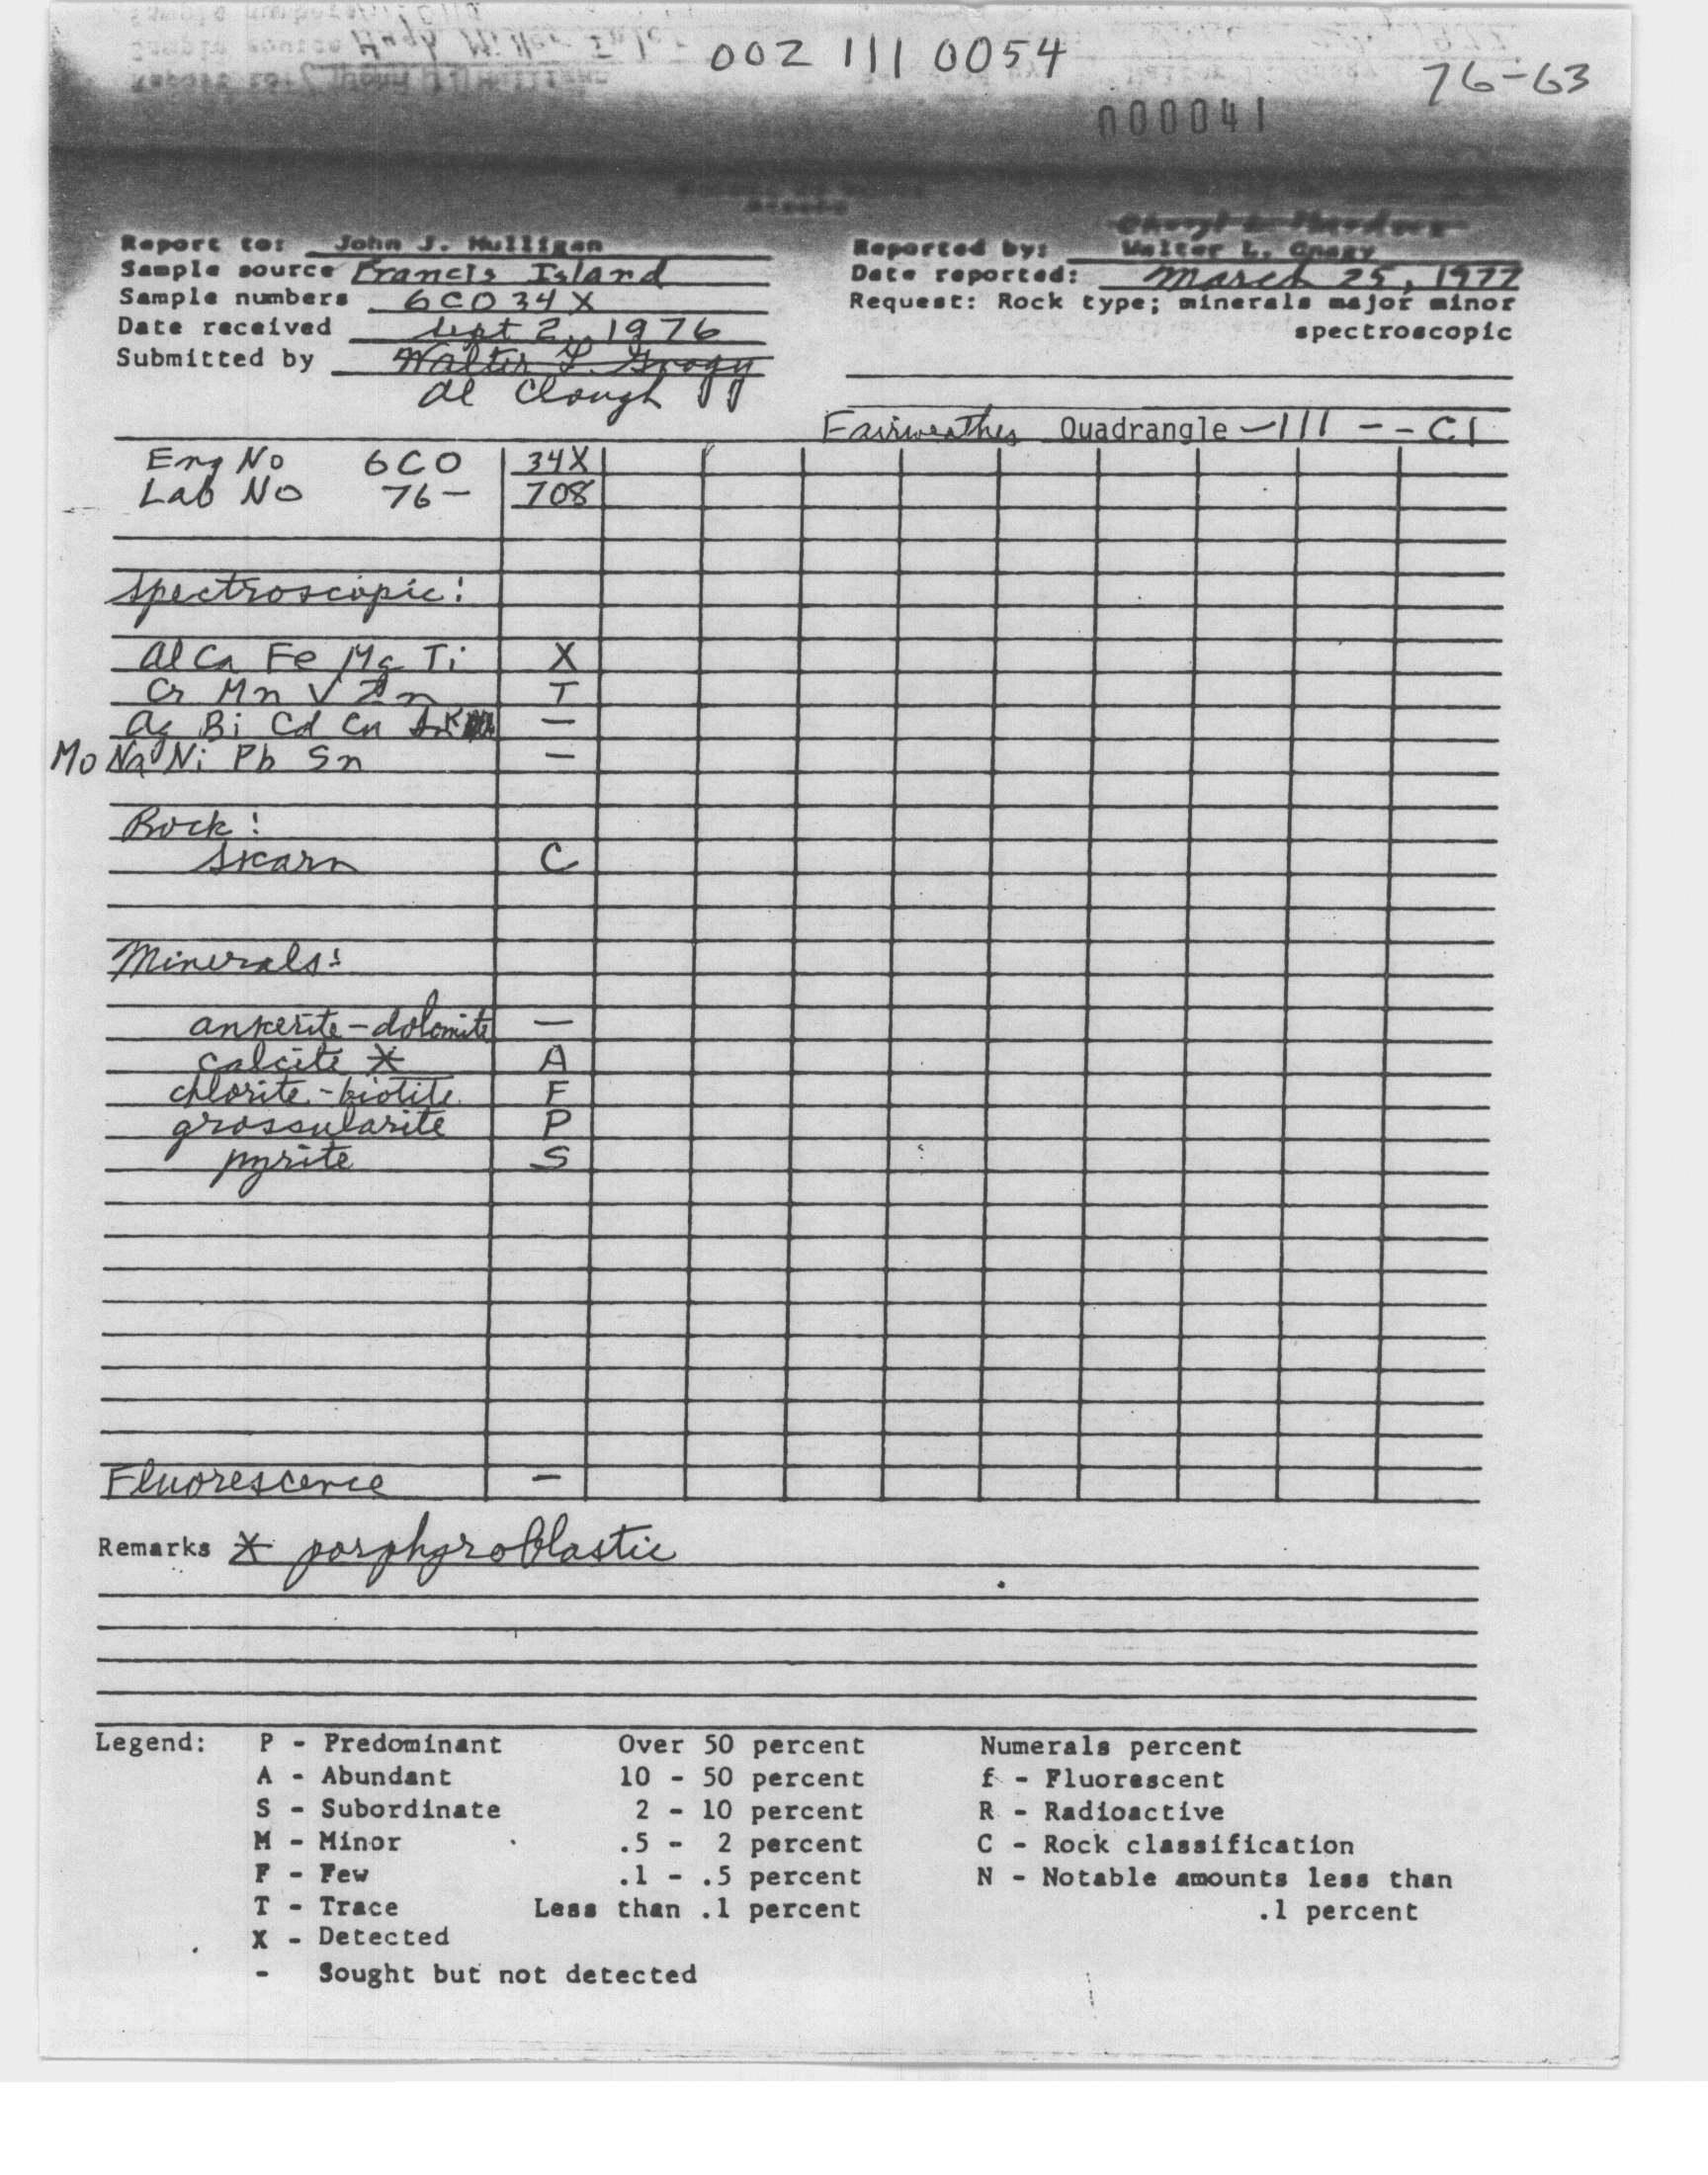 002 111 0054
76-63
000041
Report to: John J. Mulligan
Reported by: Walter L. Gnagy
Sample source Francis Island
Date reported: March 25, 1977
Sample numbers 6CO34X
Request: Rock type; minerals major minor
Date received Sept 2, 1976
spectroscopic
Submitted by Walter L. Gnagy
Al Clough
Fairweather Quadrangle -111 -- C1
Eng No 6CO 34X
Lab No 76- 708
Spectroscopic:
Al Ca Fe Mg Ti X
Cr Mn V Zn T
Ag Bi Cd Cu K -
Mo Na Ni Pb Sn -
Rock:
Skarn C
Minerals:
ankerite-dolomite -
calcite * A
chlorite-biotite F
grossularite P
pyrite S
Fluorescence -
Remarks * porphyroblastic
Legend: P - Predominant Over 50 percent Numerals percent
A - Abundant 10 - 50 percent f - Fluorescent
S - Subordinate 2 - 10 percent R - Radioactive
M - Minor .5 - 2 percent C - Rock classification
F - Few .1 - .5 percent N - Notable amounts less than
T - Trace Less than .1 percent .1 percent
X - Detected
- Sought but not detected